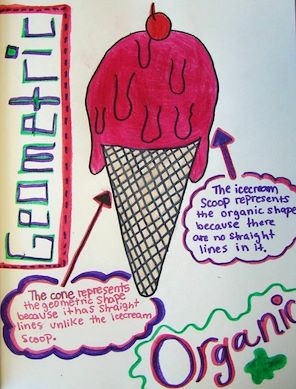 Geometric
The icecream
Scoop represents
the organic shape
because there
are no straight
lines in it.
The cone represents
the geometric shape
because it has straight
lines unlike the icecream
scoop.
Organic